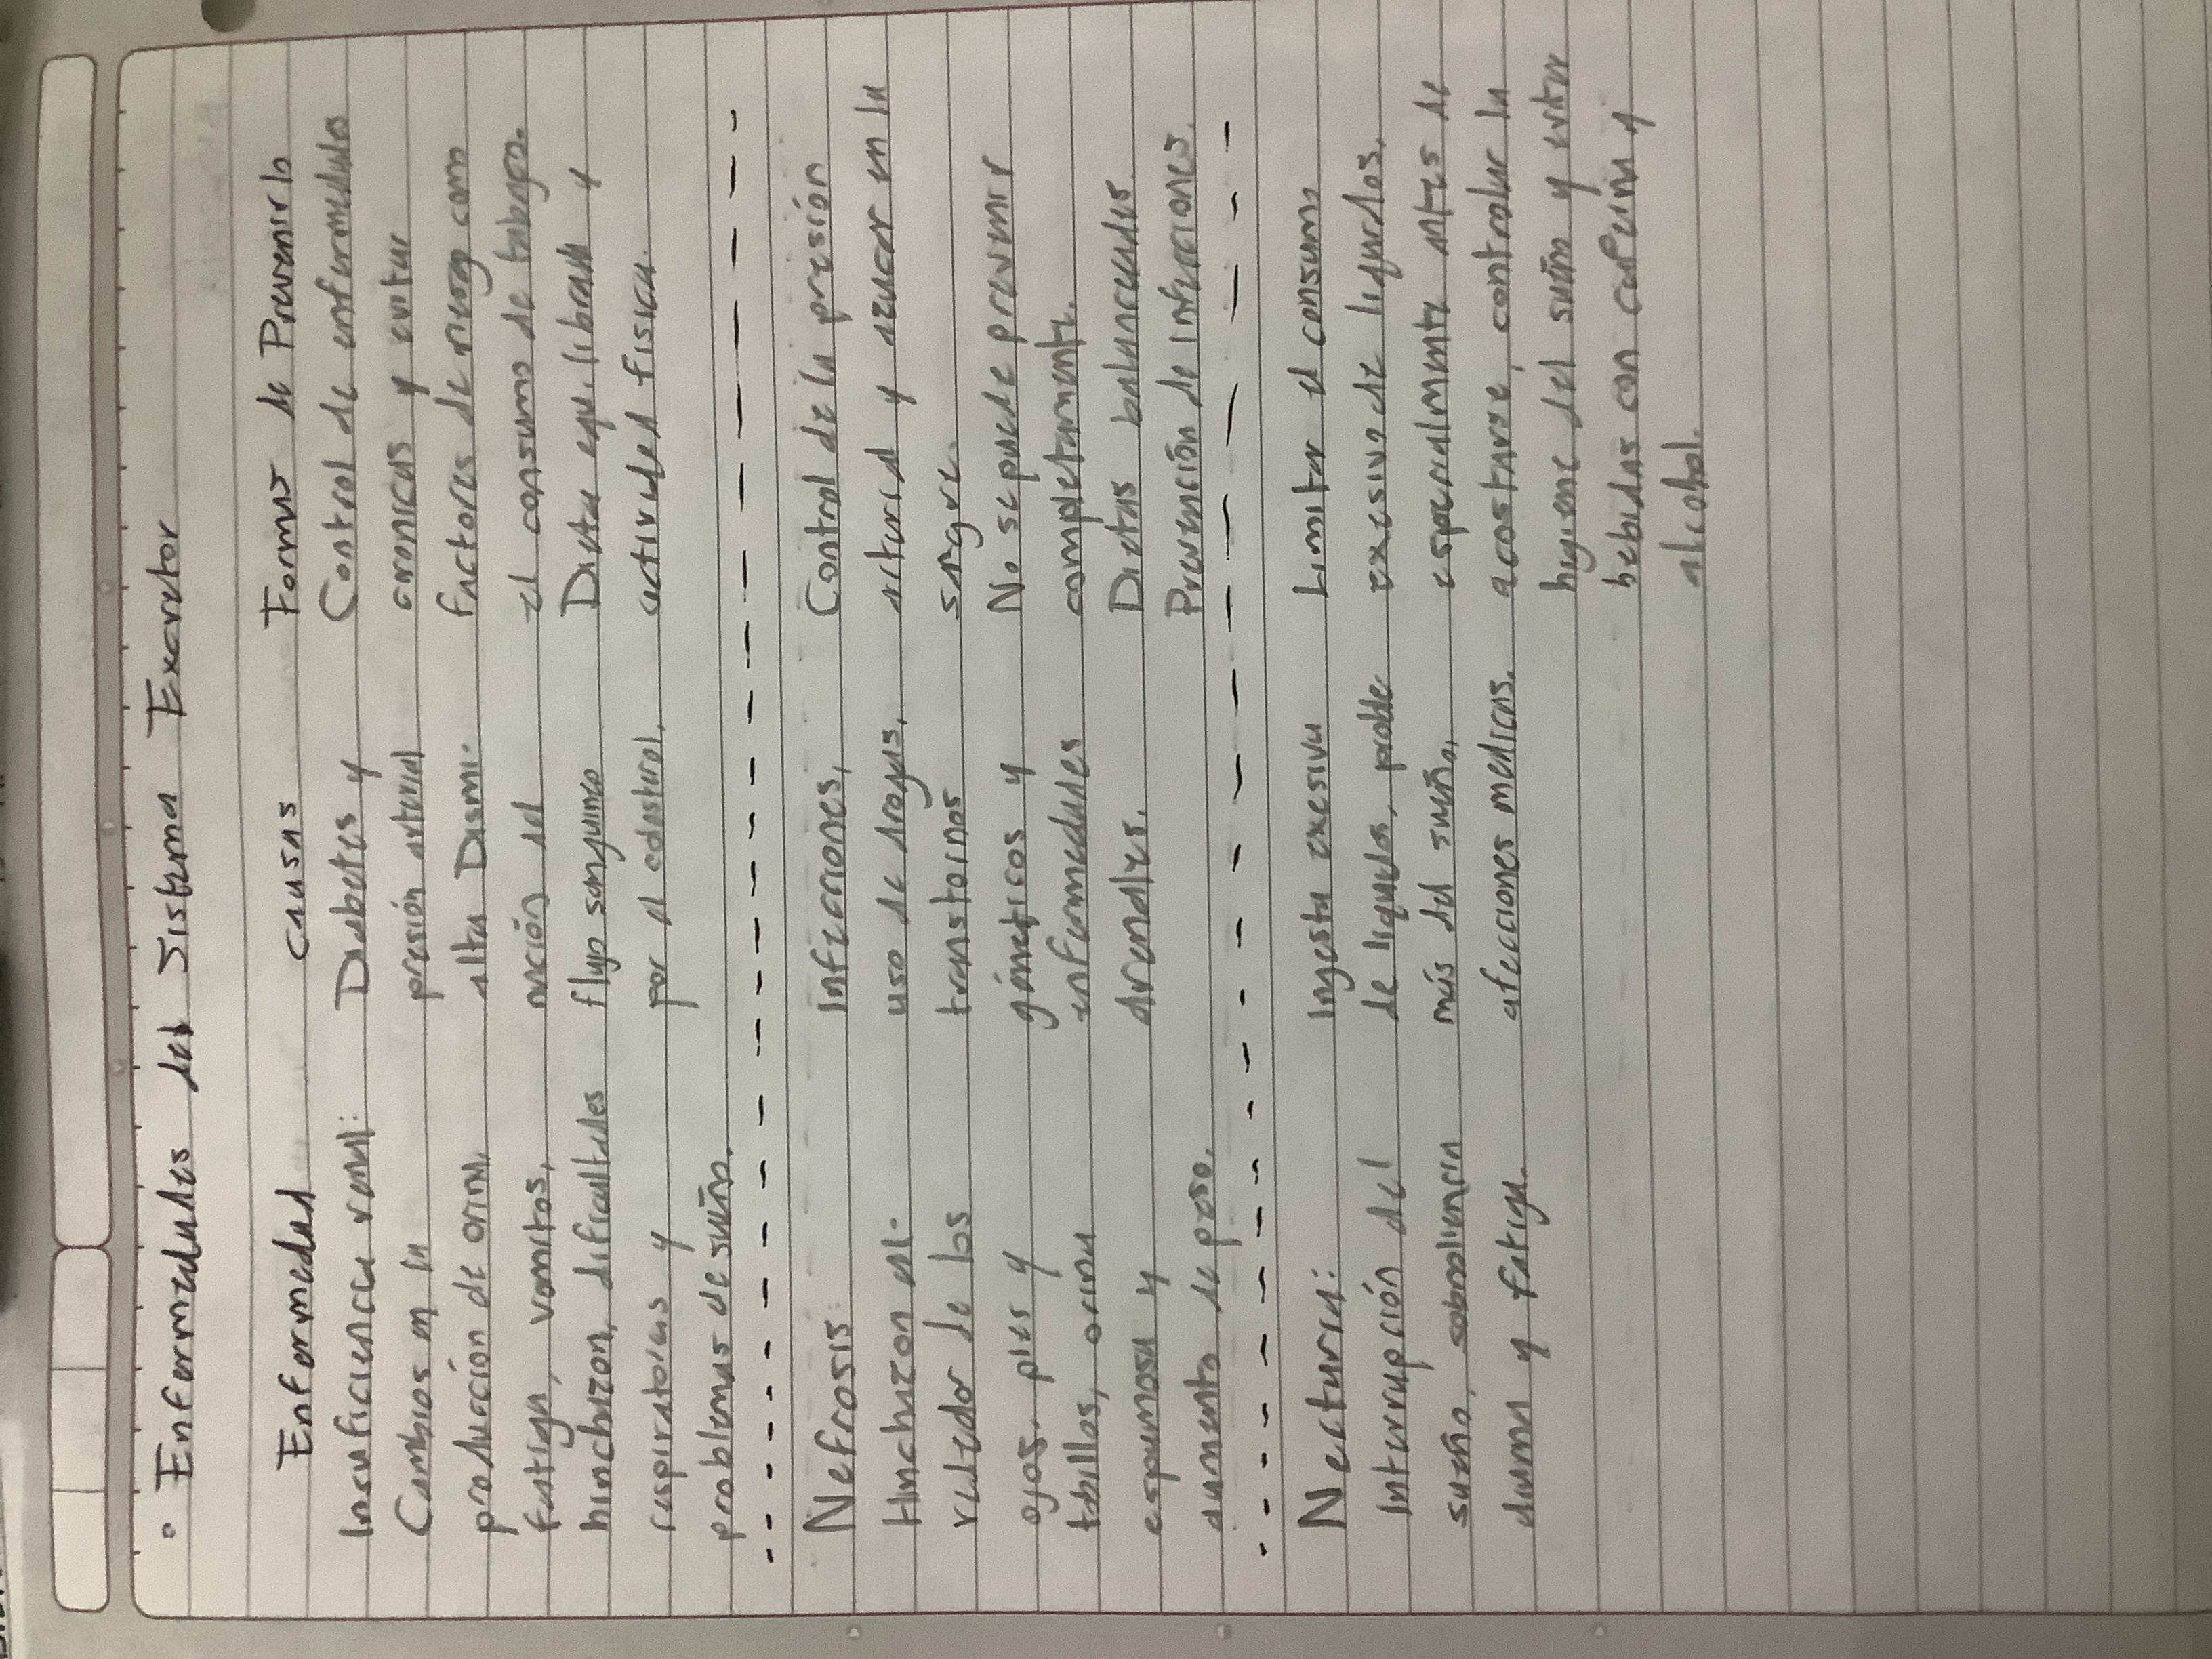 • Enfermedades del Sistema Excretor
Enfermedad causas Formas de Prevenirlo
Insuficiencia renal: Diabetes y Control de enfermedades
Cambios en la presión arterial cronicas y evitar
producción de orina, alta. Dismi- factores de riesgo como
fatiga, vomitos, nución del el consumo de tabaco.
hinchazon, dificultades flujo sanguineo Dieta equilibrada y
respiratorias y por el colesterol. actividad fisica.
problemas de sueño.
Nefrosis: Infecciones, Control de la presión
Hinchazon al- uso de drogas, arterial y azucar en la
rededor de los transtornos sangre.
ojos, pies y géneticos y No se puede prevenir
tobillos, orina enfermedades completamente.
espumosa y Dietas balanceadas
aumento de peso. Prevención de infecciones.
Necturia: Ingesta exesiva Limitar el consumo
Interrupción del de liquidos, proble- exesivo de liquidos,
sueño, somnoliencia mas del sueño, especialmente antes de
diurna y fatiga. afecciones medicas. acostarse, controlar la
higiene del sueño y evitar
bebidas con cafeina y
alcohol.